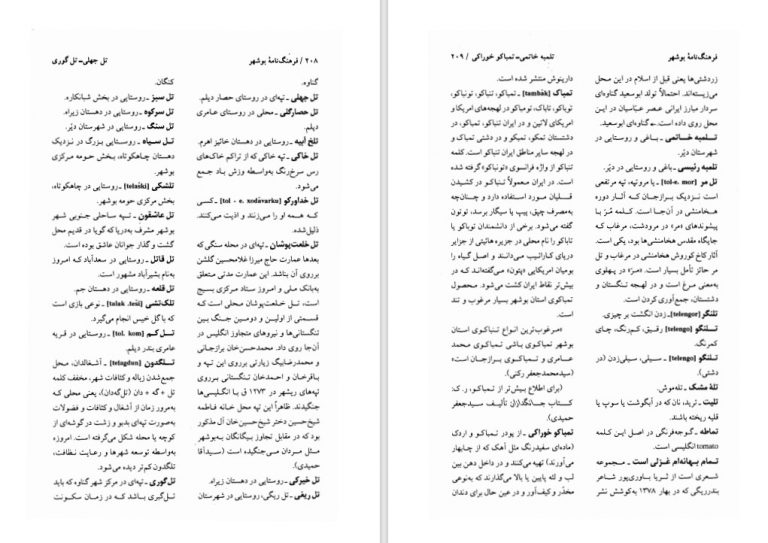 ۲۰۸ / فرهنگ‌نامهٔ بوشهر
تل جهلی ـ تل گوری
گناوه.
تل جهلی ـ تپه‌ای در روستای حصار دیلم.
تل حصارگلی ـ محلی در روستای عامری
دیلم.
تلخ آبیه ـ روستایی در دهستان خائیز اهرم.
تل خاکی ـ تپه خاکی که از تراکم خاک‌های
رس سرخ‌رنگ به‌واسطه وزش باد جمع
می‌شود.
تل خداورکو [tol - e. xodâvarku] ـ کسی
که همه او را می‌زنند و اذیت می‌کنند.
ذلیل‌شده.
تل خلعت‌پوشان ـ تپه‌ای در محله سنگی که
بعدها عمارت حاج میرزا غلامحسین گلشن
برروی آن بناشد. این عمارت مدتی متعلق
به‌بانک ملی و امروز ستاد مرکزی بسیج
است، تـل خـلعت‌پوشان محلی است کـه
قسمتی از اولیـن و دومین جـنگ بین
تنگستانی‌ها و نیروهای متجاوز انگلیس در
آن‌جا روی داد. محمدحسن‌خان برازجانی
و محمدرضابیگ زیارتی برروی این تپه و
باقرخان و احمدخان تنگستانی بـرروی
تپه‌های ریشهر در ۱۲۷۳ ق با انگـلیسی‌ها
جنگیدند. ظاهراً این تپه محل خانه فاطمه
شیخ‌حسین دختر شیخ‌حسین‌خان آل مذکور
بود که در مقابل تجاوز بیگانگان به‌بوشهر
مثل مردان می‌جنگیده است (سیدآقا
حمیدی).
تل خیرکی ـ روستایی در دهستان زیراه.
تل ریغی ـ تل ریگی، روستایی در شهرستان
کنگان.
تل سبز ـ روستایی در بخش شبانکاره.
تل سرکوه ـ روستایی در دهستان زیراه.
تل سنگ ـ روستایی در شهرستان دیّر.
تـل سـیاه ـ روستایی بـزرگ در نـزدیک
دهستان چاهکوتاه، بخش حومه مرکزی
بوشهر.
تلشکی [telaški] ـ روستایی در چاهکوتاه،
بخش مرکزی حومه بوشهر.
تل عاشقون ـ تپـه ساحلی جنوبی شهر
بوشهر مشرف به‌دریا که گویا در قدیم محل
گشت و گذار جوانان عاشق بوده است.
تل قاتل ـ روستایی در سعدآباد کـه امـروز
به‌نام بشیرآباد مشهور است.
تل قلعه ـ روستایی در دهستان جم.
تلک‌تشی [talak .teši] ـ نوعی بازی است
که با گل خیس انجام می‌گیرد.
تـل کـم [tol. kom] ـ روستایی در قریه
عامری بندر دیلم.
تلگدون [telagdun] ـ آشغالدان، محل
جمع‌شدن زباله و کثافات شهر، مخفف کلمه
تل + گه + دان (تل‌گه‌دان)، یعنی محلی که
به‌مرور زمان از آشغال و کثافات و فضولات
به‌صورت تپه‌ای بدبو و زشت در گوشه‌ای از
کوچه یا محله شکل می‌گرفته است. امروزه
به‌واسطه توسعه شهرها و رعایت نظافت،
تلگدون کم‌تر دیده می‌شود.
تل‌گوری ـ تپه‌ای در مرکز شهر گناوه که باید
تـل‌گبری باشد کـه در زمان سکونت
فرهنگ‌نامهٔ بوشهر
تلمبه خاتمی ـ تمباکو خوراکی / ۲۰۹
زردشتی‌ها یعنی قبل از اسلام در این محل
می‌زیسته‌اند. احتمالاً تولد ابوسعید گناوه‌ای
سردار مبارز ایرانی عصر عبّاسیان در این
محل روی داده است.← گناوه‌ای ابوسعید.
تـلمبه خـاتمی ـ باغی و روستایی در
شهرستان دیّر.
تلمبه رئیسی ـ باغی و روستایی در دیّر.
تل مو [tol-e. mor] ـ یا مروتپه، تپه مرتفعی
است نزدیک برازجان که آثار دوره
هخامنشی در آن‌جا است. کـلمه مُـرّ بـا
پیشوندهای «مر» در مرودشت، مرغاب کـه
جایگاه مقدس هخامنشی‌ها بود، یکی است.
آثار کاخ کوروش هخامنشی در مرغاب و تل
مر حائز تأمل بسیار است. «مرّ» در پـهلوی
به‌معنی مرغ است و در لهجه تنگستان و
دشتستان، جمع‌آوری کردن است.
تلنگر [telengor] ـ زدن انگشت بر چیزی.
تـلنگو [telengo] ـ رقـیق، کم‌رنگ، چای
کمرنگ.
تـلنگو [telengo] ـ سـیلی، سیلی‌زدن (در
دشتی).
تلهٔ مشک ـ تله‌موش.
تلیت ـ ترید، نان که در آبگوشت یا سوپ یا
قلیه ریخته باشند.
تماطه ـ گوجه‌فرنگی در اصل ایـن کـلمه
tomato انگلیسی است.
تـمام بـهانه‌ام غـزلی است ـ مجموعه
شعری است از ثـریا یـاوری‌پور شـاعر
بندرریگی که در بهار ۱۳۷۸ به‌کوشش نشر
دارینوش منتشر شده است.
تمباک [tambâk] ـ تمباکو، تنباکو، تونباکو،
توباکو، تاباک، تومباکو در لهجه‌های امریکا و
امریکای لاتین و در ایران تنباکو، تمباکو، در
دشتستان تمکو، تمبکو و در دشتی تمباک و
در لهجه سایر مناطق ایران تنباکو است. کلمه
تنباکو از واژه فرانسوی «تاباکو» گرفته شده
است. در ایران معمولاً تـنباکـو در کشـیدن
قـلیان مـورد اسـتفاده دارد و چنان‌چه
به‌مصرف چپق، پیپ یا سیگار برسد، توتون
گفته می‌شود. برخی از دانشمندان توباکو یا
تاباکو را نام محلی در جزیره هائیتی از جزایر
دریای کـارائیب می‌دانند و اصل گیاه را
بومیان امریکایی «پتون» می‌گفته‌اند کـه در
بیش‌تر نقاط ایران کشت می‌شود. محصول
تمباکوی استان بوشهر بسیار مرغوب و تند
است.
«مرغوب‌ترین انواع تـنباکـوی استان
بوشهر تمباکوی باشی تمباکوی محمد
عـامری و تنباکوی بـرازجان است»
(سیدمحمدجعفر رکنی).
(برای اطلاع بیش‌تر از تـمباکو، ر. ک:
کـتاب جـالنگداران تألیف سـیدجعفر
حمیدی).
تمباکو خوراکی ـ از پودر تـمباکو و اردک
(ماده‌ای سفیدرنگ مثل آهک که از چـابهار
می‌آورند) تهیه می‌کنند و در داخل دهن بین
لب و لثه پایین یا بالا می‌گذارند که به‌نوعی
مخدّر و کیف‌آور و در عین حال برای دندان